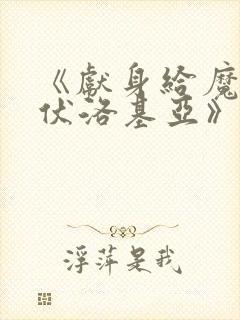 《獻身給魔
伏洛基亞》
浮萍是我